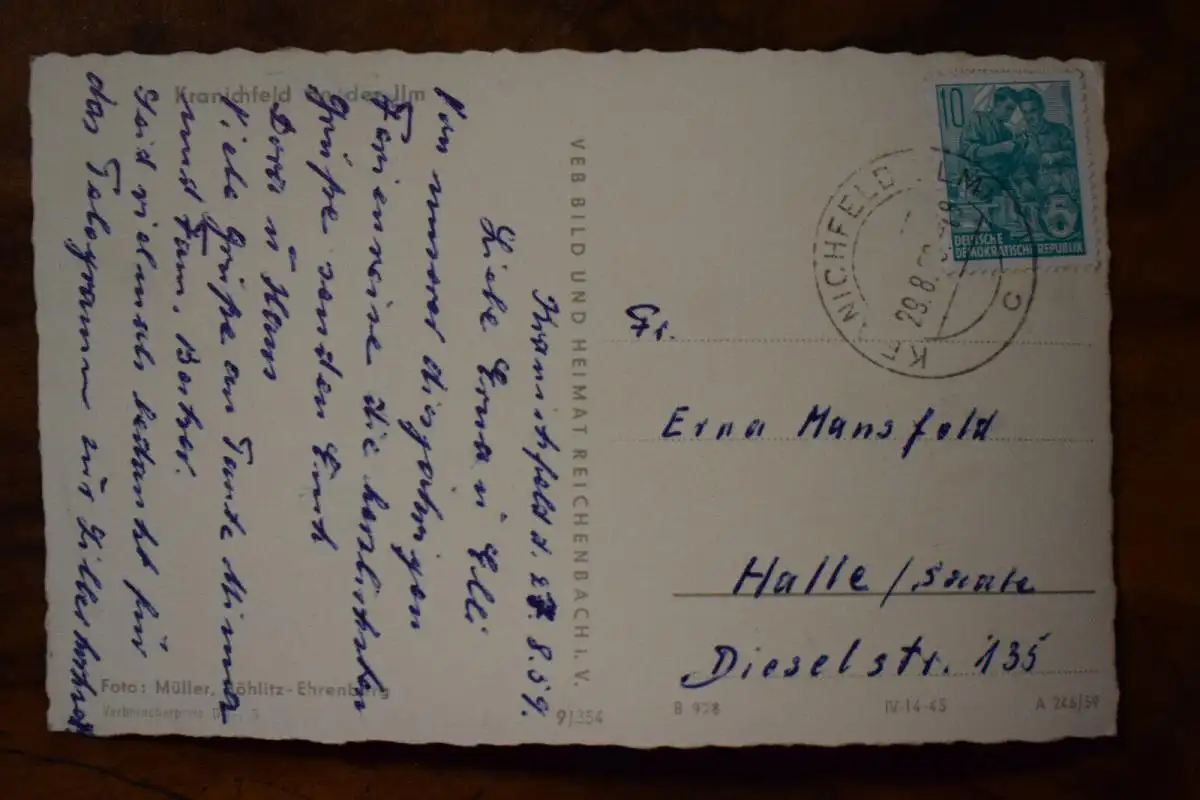 Kranichfeld an der Ilm
Kranichfeld d. 27. 8. 59.
Liebe Erna u. Elli
Von unserer diesjährigen
Ferienreise die herzlichsten
Grüße senden Euch
Dora u. Hans
Viele Grüße an Tante Minna
und Fam.
Seid vielmals bedankt für
das Telegramm zur Silberhochzeit
VEB BILD UND HEIMAT REICHENBACH i. V.
Foto: Müller, Böhlitz-Ehrenberg
9/354
10
5
DEUTSCHE
DEMOKRATISCHE REPUBLIK
KRANICHFELD ILM
29.8.
c
Erna Mansfeld
Halle / Saale
Dieselstr. 135
B 928
IV-14-45
A 246/59